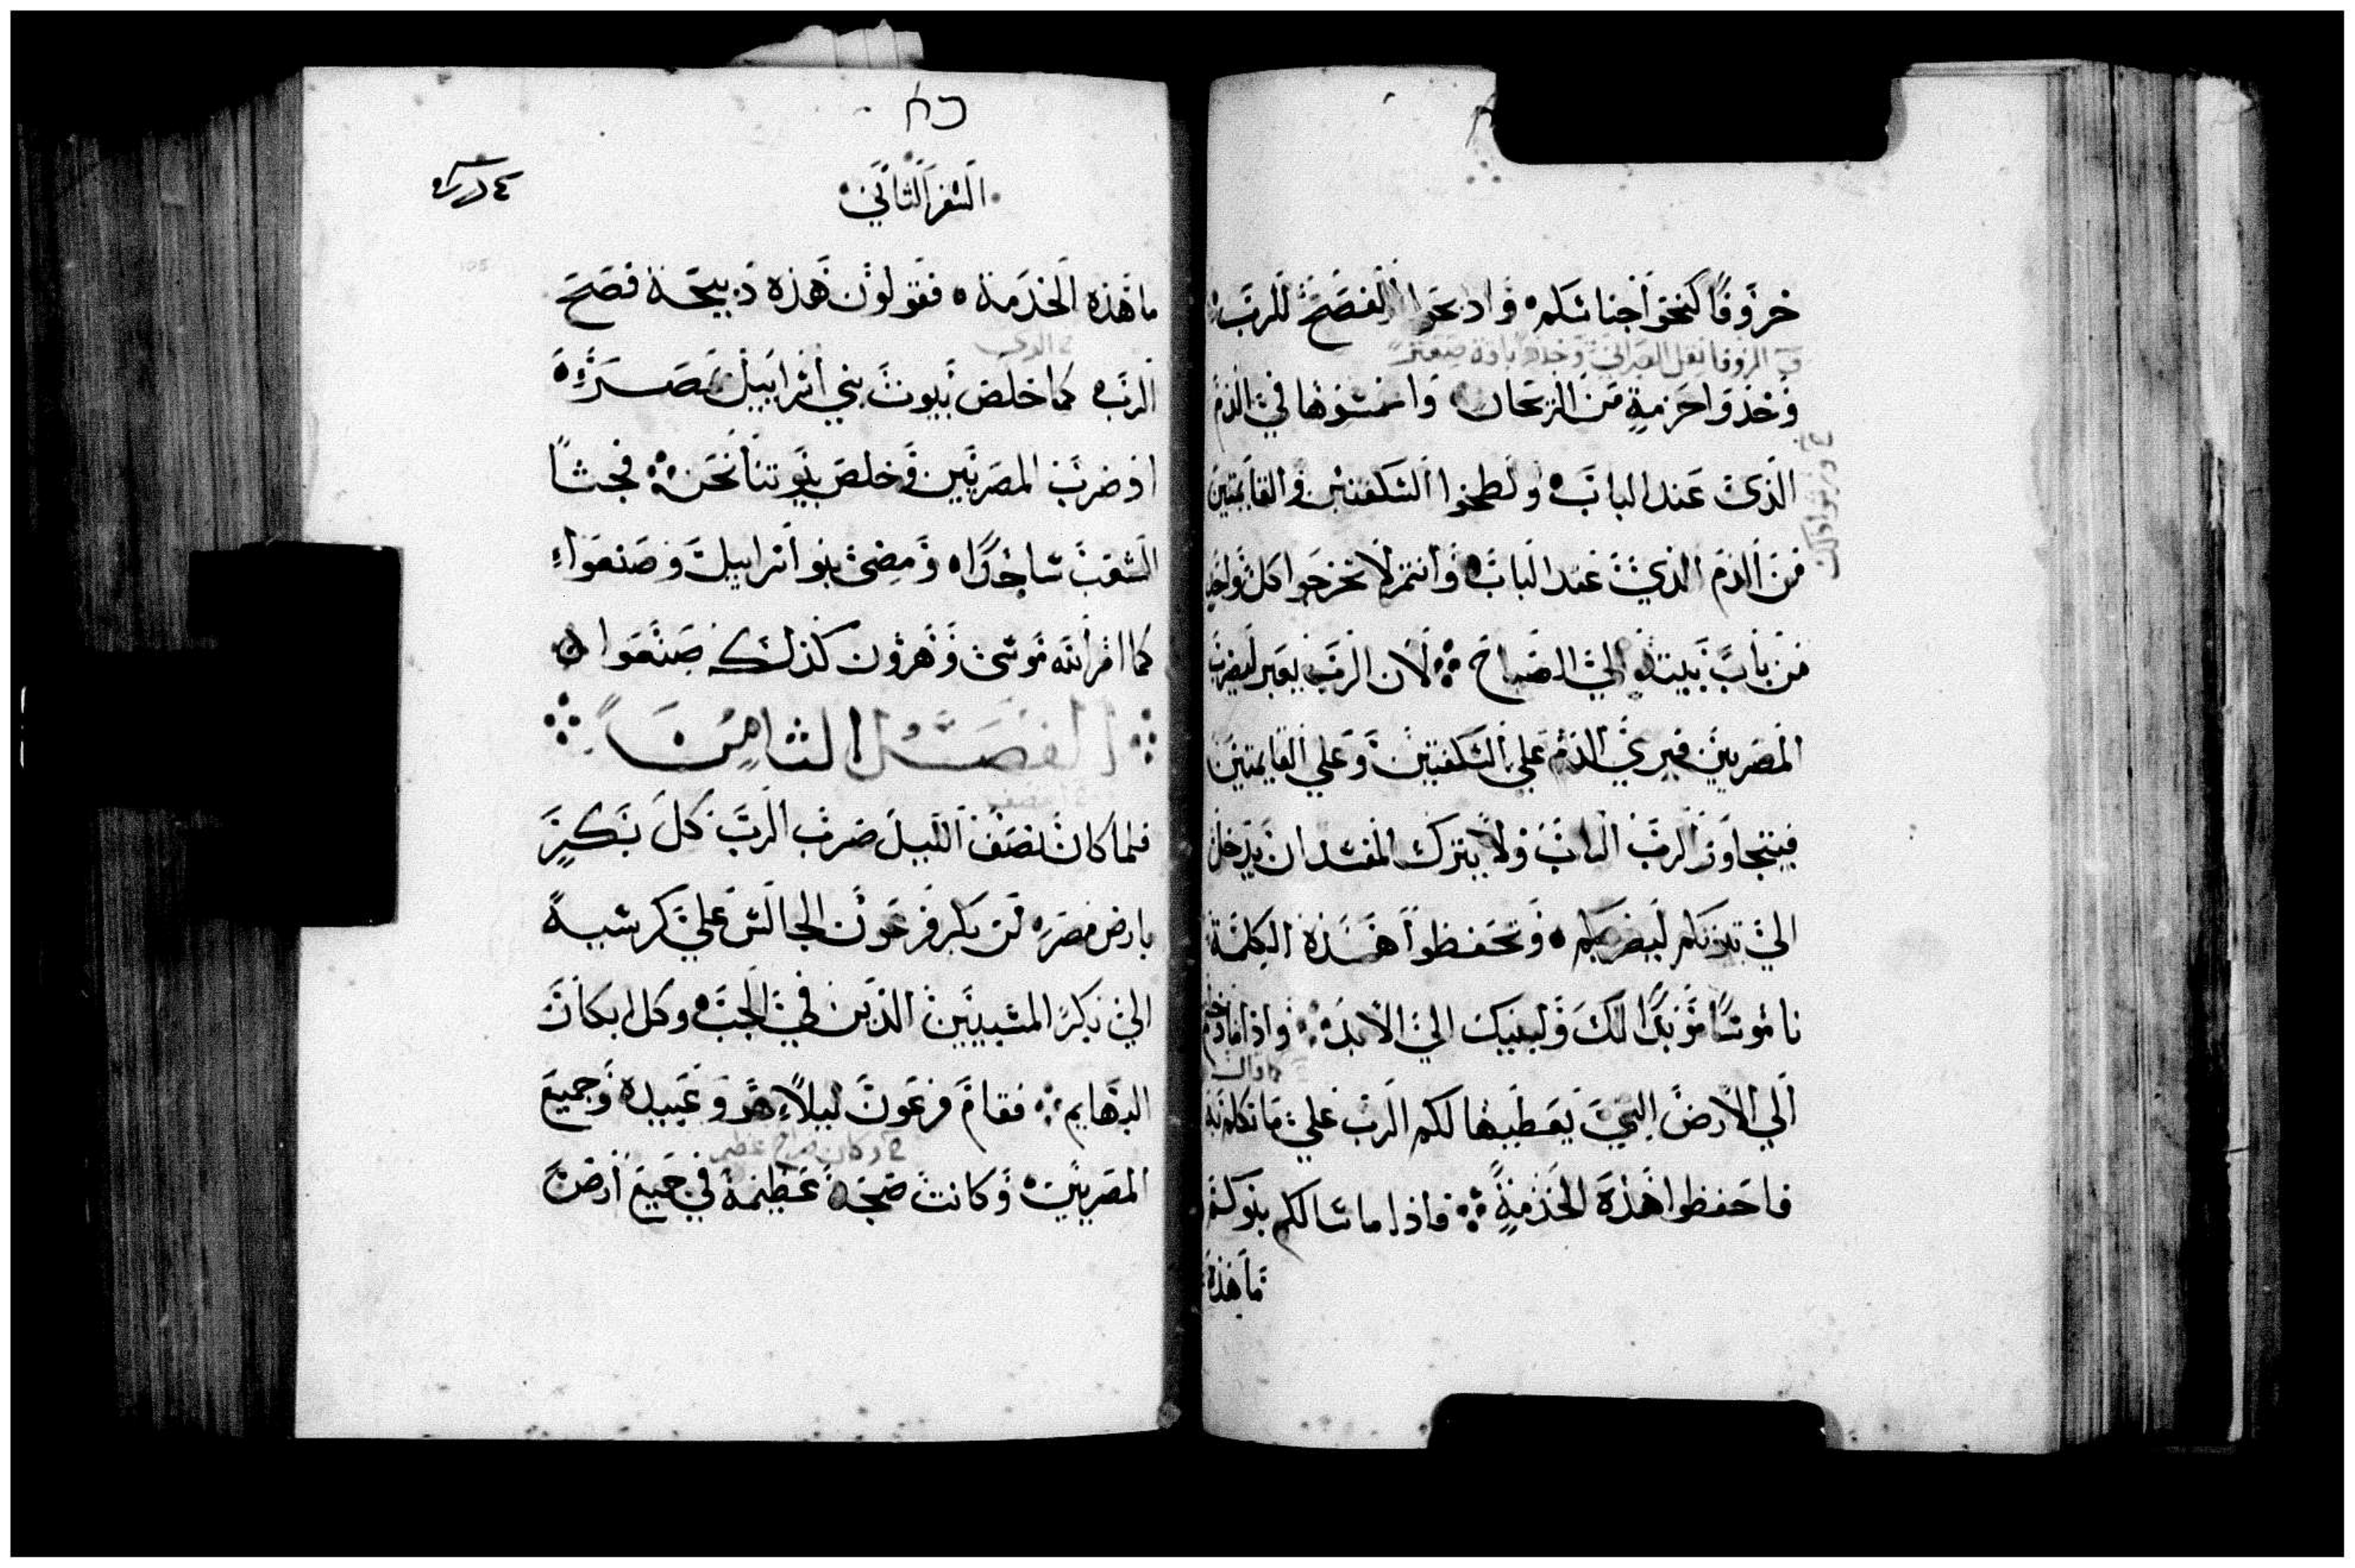 خروفًا كنحو أجناسكم وادبحوا الفصح للرب
وخذوا حزمة من الزيحان واغمسوها في الدم
الذي عند الباب ولطخوا السكفتين والقايمتين
من الدم الذي عند الباب وأنتم لا تخرجوا كل واحد
من باب بيته إلي الصباح لأن الرب يعبر ليضرب
المصريين فيري الدم علي السكفتين وعلي القايمتين
فيتجاوز الرب الباب ولا يترك المفسد ان يدخل
الي بيوتكم ليضربكم وتحفظوا هذه الكلمة
ناموسًا مؤبدًا لك ولبنيك الي الأبد واذا ما دخلتم
الي الأرض التي يعطيها لكم الرب علي ما تكلم به
فاحفظوا هذه الخدمة فاذا ما سالكم بنوكم
ما هذه
السفر الثاني
ما هذه الخدمة فقولون هذه دبيحة فصح
الرب كما خلص بيوت بني اسراييل بمصر
اذ ضرب المصريين وخلص بيوتنا نحن فجثا
الشعب ساجدًا ومضي بنو اسراييل وصنعوا
كما امر الله موسي وهرون كذلك صنعوا
الفصل الثامن
فلما كان نصف الليل ضرب الرب كل بكير
بارض مصر من بكر فرعون الجالس علي كرسيه
الي بكر المسبيين الذين في الجب وكل ابكار
البهايم فقام فرعون ليلاً هو وعبيده وجميع
المصريين وكانت ضجة عظيمة في جميع أرض